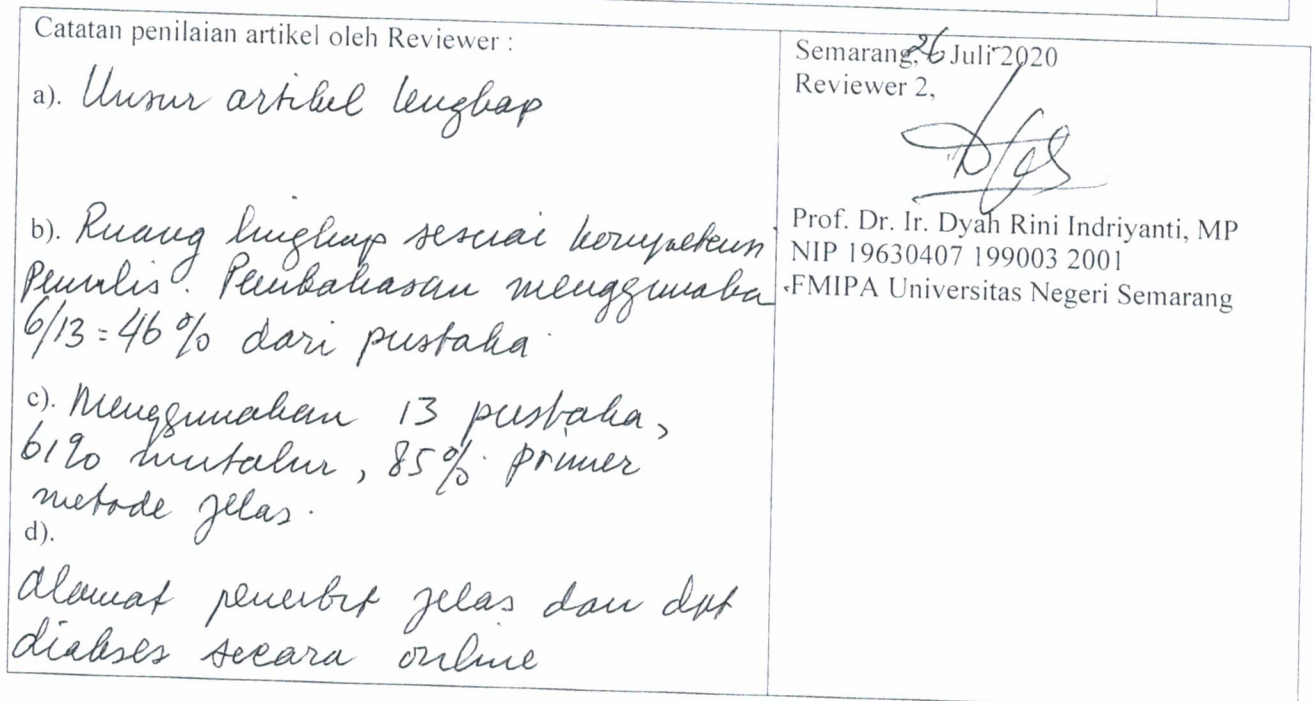 Catatan penilaian artikel oleh Reviewer :
a). Unsur artikel lengkap
b). Ruang lingkup sesuai kompetensi
Penulis. Pembahasan menggunaka
6/13 = 46 % dari pustaka
c). Menggunakan 13 pustaka,
61% mutahir, 85% primer
metode jelas.
d).
Alamat penerbit jelas dan dpt
diakses secara online
Semarang, 26 Juli 2020
Reviewer 2,
Prof. Dr. Ir. Dyah Rini Indriyanti, MP
NIP 19630407 199003 2001
FMIPA Universitas Negeri Semarang